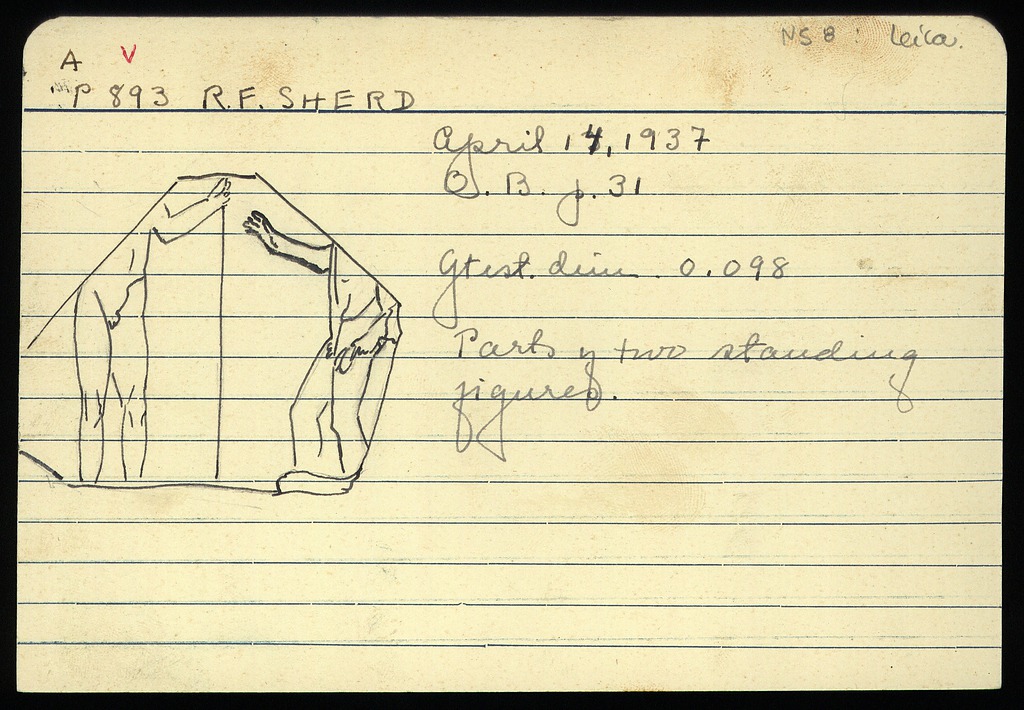 NS 8 : Leica.
A V
P 893 R.F. SHERD
April 14, 1937
O. B. p. 31
Gtest. dim. 0.098
Parts of two standing
figures.